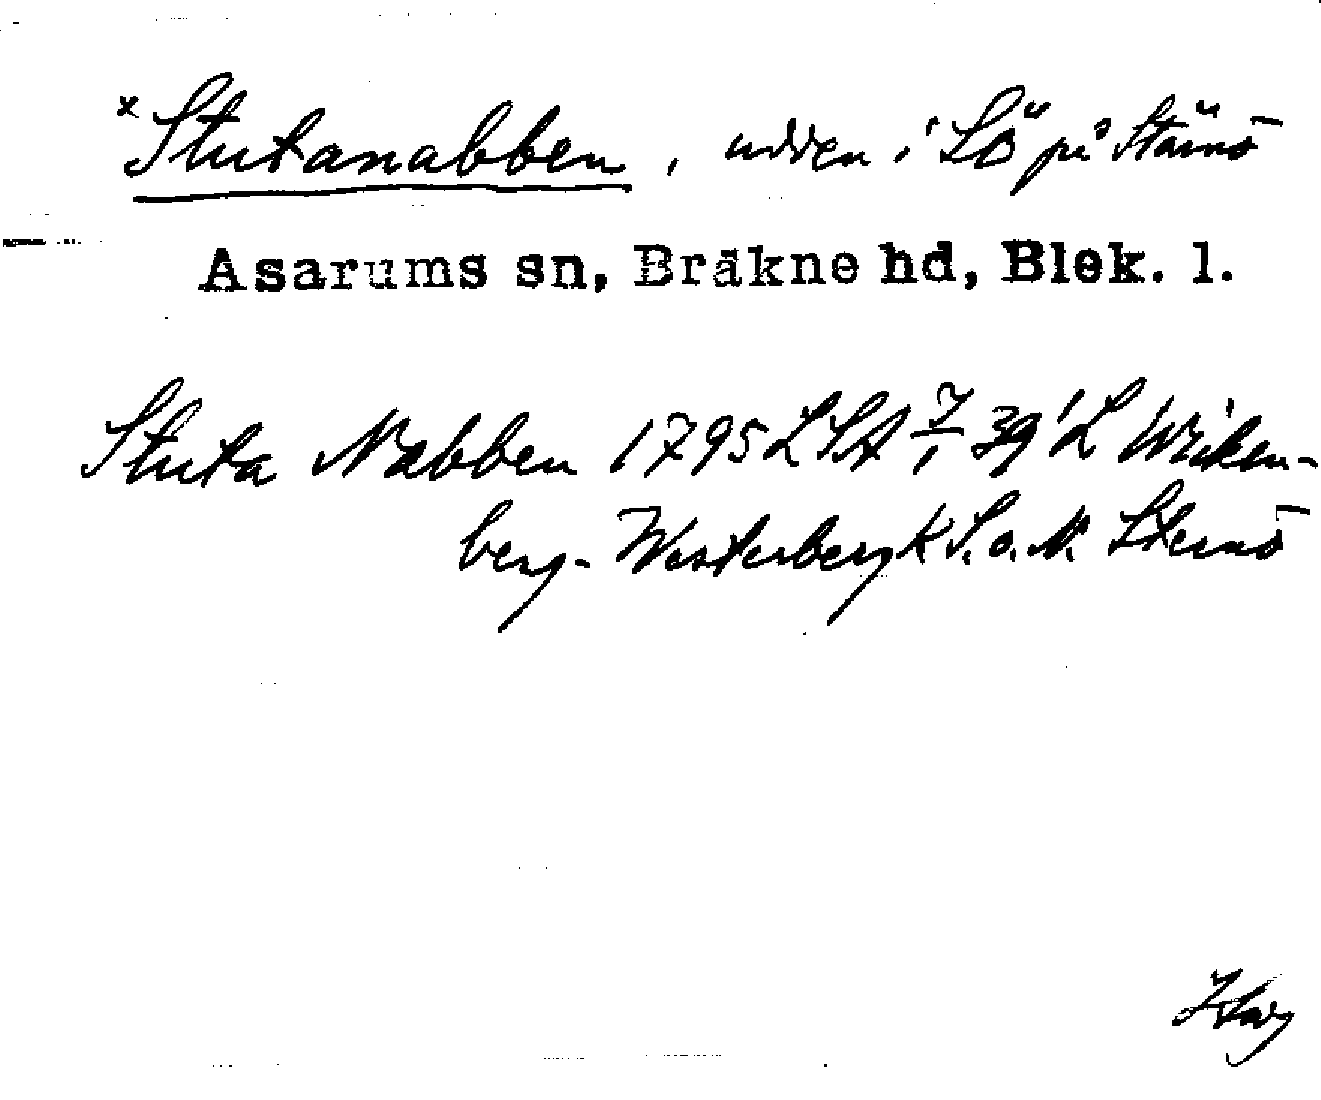 x Stutanabben, udden i SÖ på Stärnö
Asarums sn, Bräkne hd, Blek. l.
Stuta Nabben 1795 LSA 39 L Wieken-
berg-Westerberg K S. o. N. Sternö